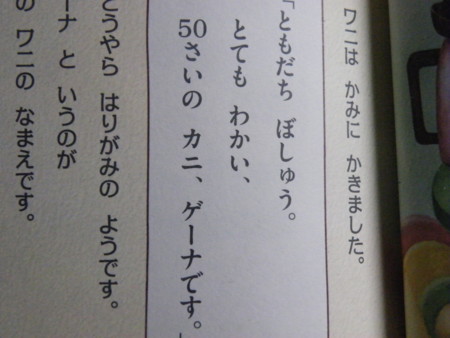 ワニは かみに かきました。
「ともだち ぼしゅう。
とても わかい、
50さいの カニ、ゲーナです。」
どうやら はりがみの ようです。
ーナ と いうのが
の ワニの なまえです。